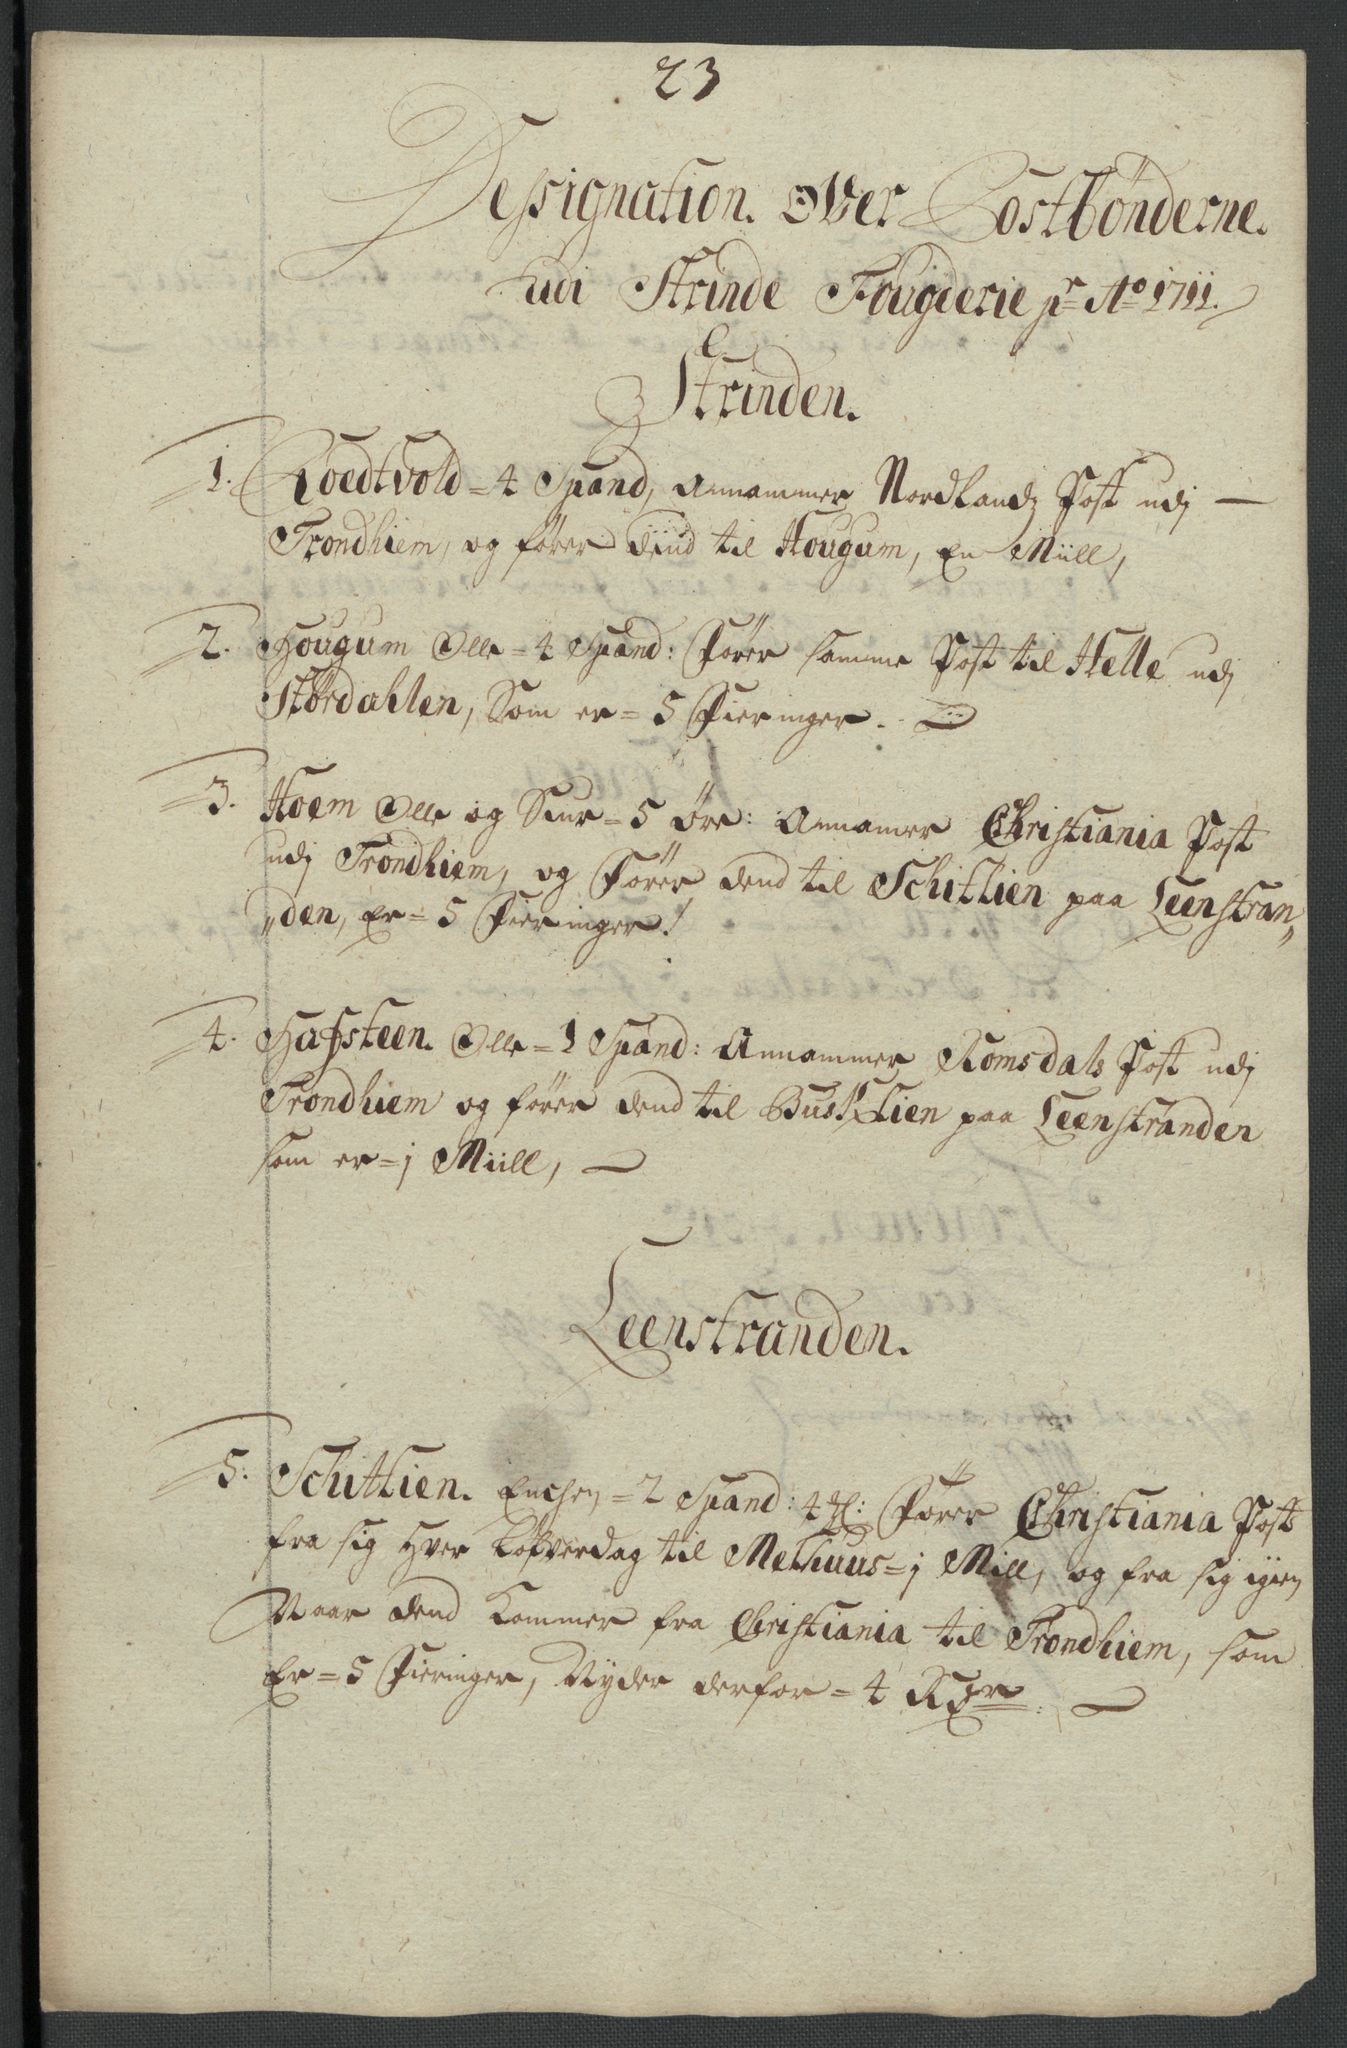 23
Dessignation. Over Postbönderne.
udi Strinde Fougderie pr Ao 1711.
Strinden.
1. Roedtvold = 4 Spand, Annammer Nordlandz Post udj —
Trondhiem, og förer dend til Hougum, En Miill,
2. Hougum Olle = 4 Spand: Förer samme Post til Helle udj
Stördahlen, Som er = 5 Fieringer.
3. Hoem Olle og Siur = 5 Öre: Annamer Christiania Post
udj Trondhiem, og Förer dend til Schitlien paa Leenstran„
„den, Er = 5 Fieringer!
4. Hafsteen. Olle = 1 Spand: Annammer Romsdals Post udj
Trondhiem og förer dend til Busklien paa Leenstranden
som er = j Miill,
Leenstranden.
5. Schitlien. = 2 Spand: 4 : Förer Christiania Post
fra sig Hver Löfverdag til Melhuus = j Mill, og fra sig igien
Naar dend Kommer fra Christiania til Trondhiem, som
Er = 5 Fieringer, Nyder derfor = 4 Rdr